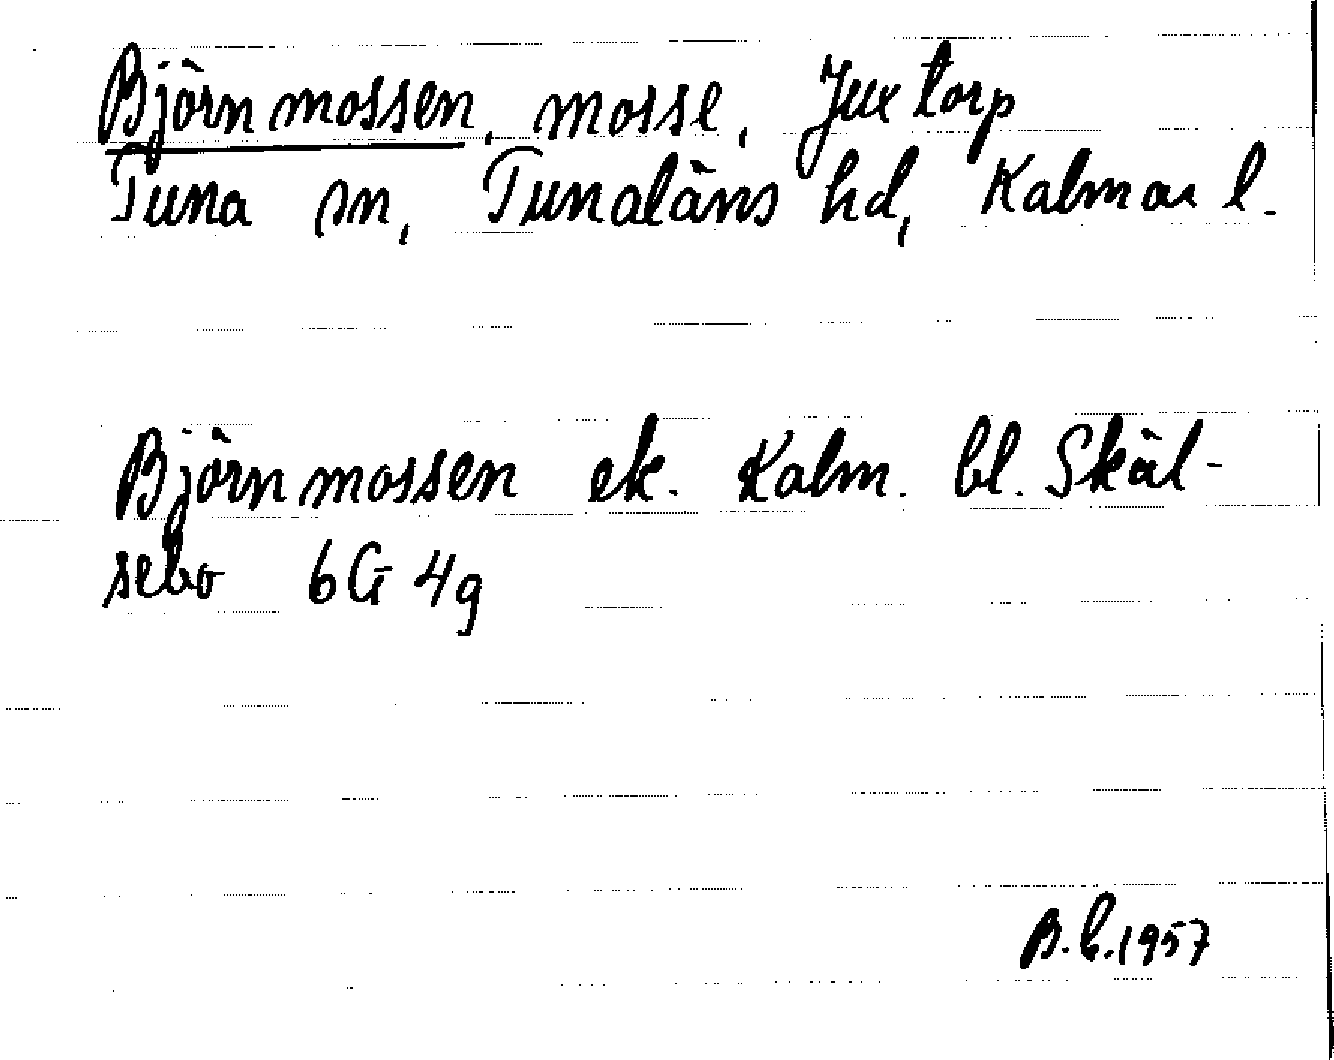 Björnmossen, mosse, Juxtorp
Tuna sn, Tunaläns hd, Kalmar l.
Björnmossen ek. Kalm. bl. Skäl-
sebo 6G 4g
B.L. 1957